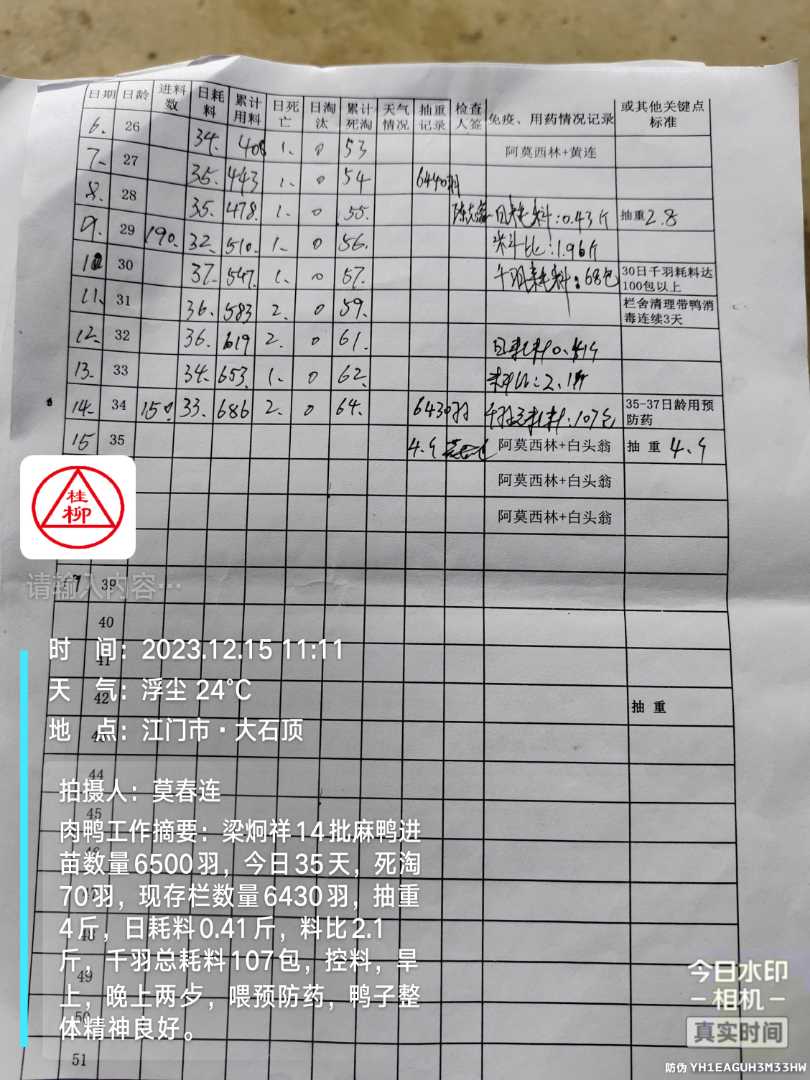 日期 日龄 进料数 日耗料 累计用料 日死亡 日淘汰 累计死淘 天气情况 抽重记录 检查人签 免疫、用药情况记录 或其他关键点标准
6. 26 34. 408 1. 0 53 阿莫西林+黄连
7. 27 35. 443 1. 0 54 6440羽
8. 28 35. 478. 1. 0 55. 日耗料:0.43斤 抽重2.8
9. 29 190. 32. 510. 1. 0 56. 料比:1.96斤
10 30 37. 547. 1. 0 57. 千羽耗料:68包 30日千羽耗料达100包以上
11. 31 36. 583 2. 0 59. 栏舍清理带鸭消毒连续3天
12. 32 36. 619 2. 0 61. 日耗料0.41斤
13. 33 34. 653. 1. 0 62. 料比:2.1斤
14. 34 150 33. 686 2. 0 64. 6430羽 千羽总耗料:107包 35-37日龄用预防药
15 35 4.斤 阿莫西林+白头翁 抽重 4.斤
阿莫西林+白头翁
阿莫西林+白头翁
桂柳
请输入内容…
39
40
41
42 抽重
44
45
48
49
50
51
时 间：2023.12.15 11:11
天 气：浮尘 24℃
地 点：江门市·大石顶
拍摄人：莫春连
肉鸭工作摘要：梁炯祥14批麻鸭进
苗数量6500羽，今日35天，死淘
70羽，现存栏数量6430羽，抽重
4斤，日耗料0.41斤，料比2.1
斤，千羽总耗料107包，控料，旱
上，晚上两歺，喂预防药，鸭子整
体精神良好。
今日水印
-相机-
真实时间
防伪 YH1EAGUH3M33HW